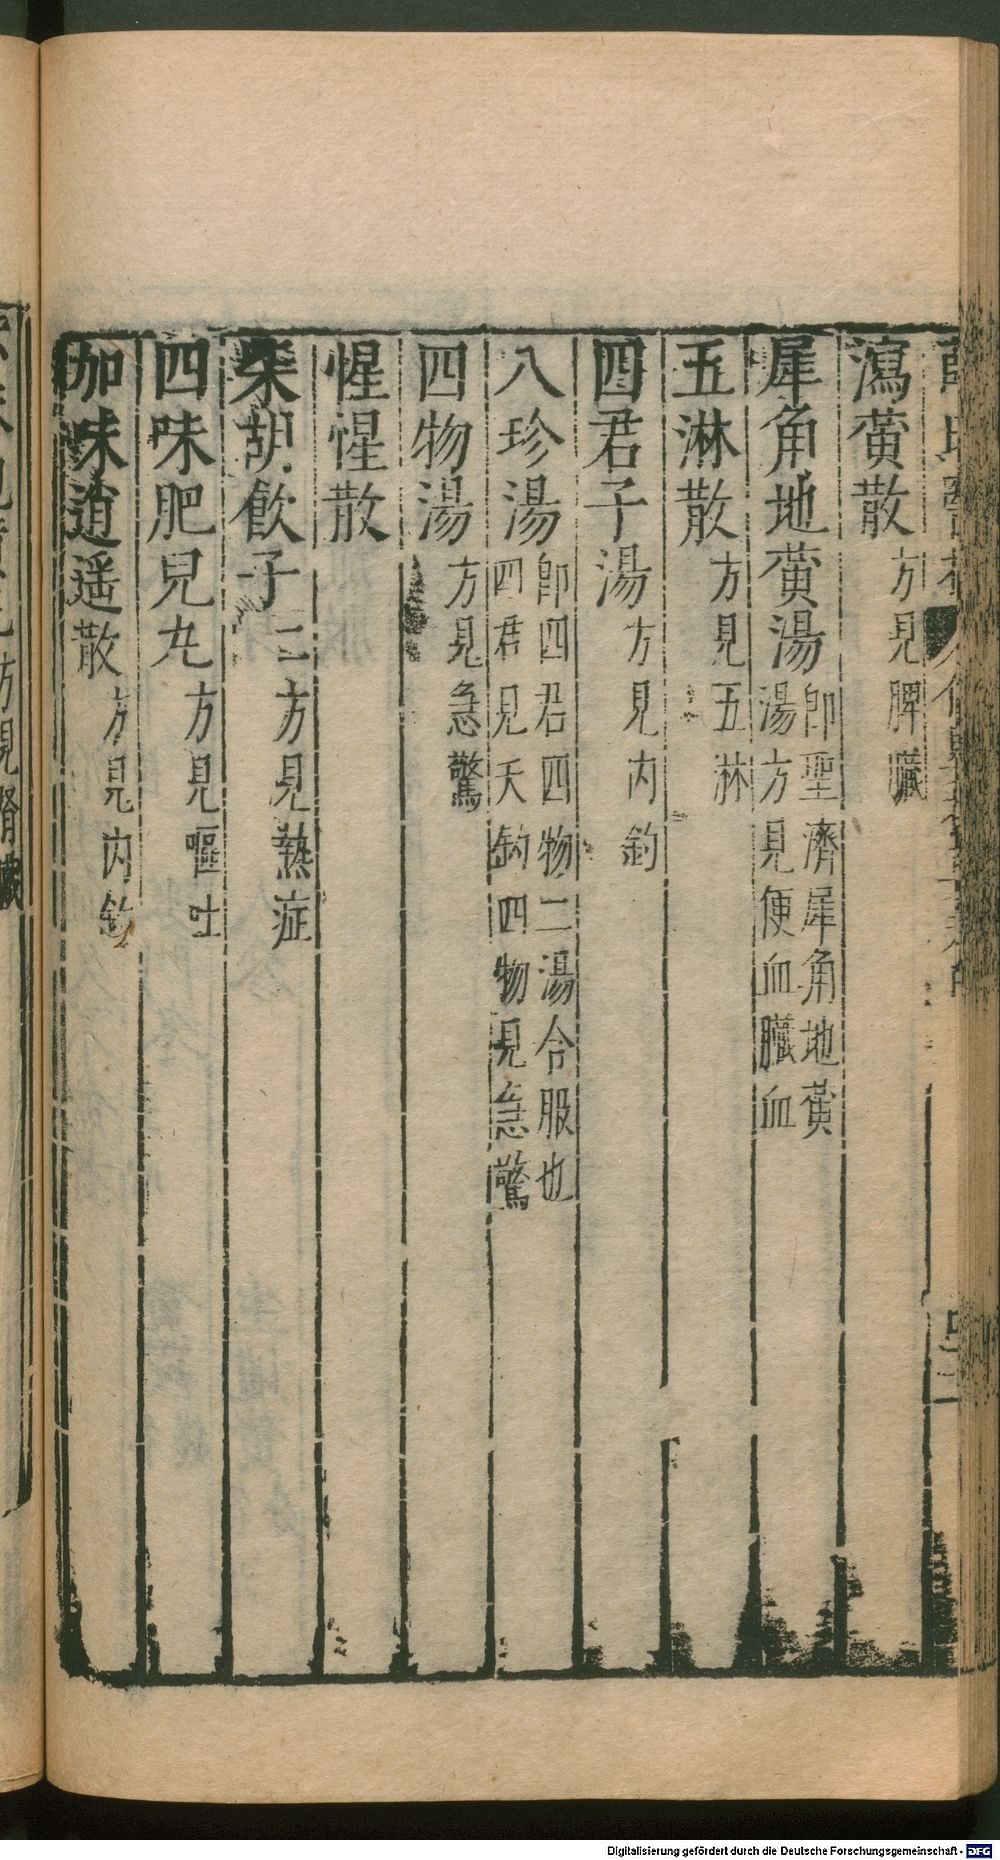 瀉黃散 方見脾臟
犀角地黃湯 卽聖濟犀角地黃
湯方見便血臟血
五淋散 方見五淋
四君子湯 方見内釣
八珍湯 卽四君四物二湯合服也
四君見天釣四物見急驚
四物湯 方見急驚
惺惺散
柴胡飲子 二方見熱症
四味肥兒丸 方見嘔吐
加味逍遥散 方見内釣
Digitalisierung gefördert durch die Deutsche Forschungsgemeinschaft - DFG